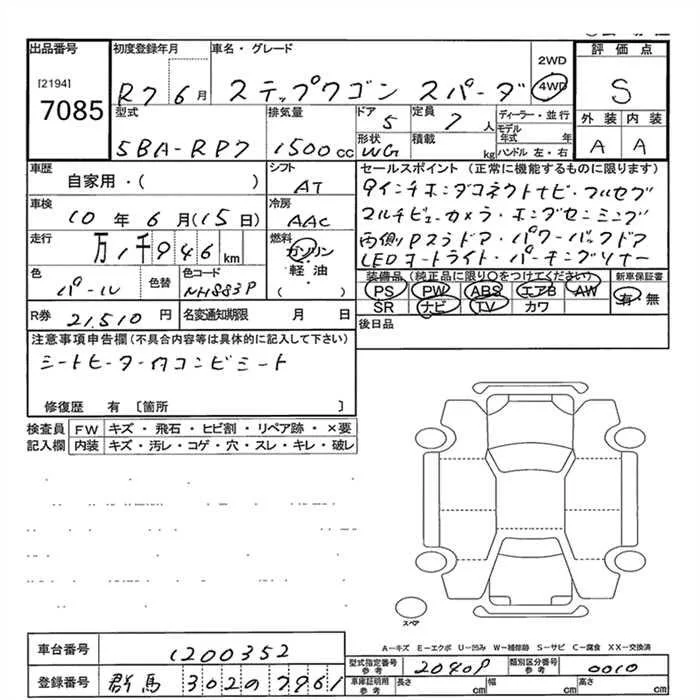 出品番号
[2194]
7085
初度登録年月
R7 6月
車名・グレード
ステップワゴン スパーダ
2WD
4WD
評価点
S
外装 内装
A A
型式
5BA-RP7
排気量
1500cc
ドア 5
形状 WG
定員 7人
積載 kg
ディーラー・並行
モデル年式 年
ハンドル 左・右
車歴
自家用・( )
シフト
AT
セールスポイント (正常に機能するものに限ります)
9インチホンダコネクトナビ・フルセグ
マルチビューカメラ・ホンダセンシング
両側Pスラドア・パワーバックドア
LEDオートライト・パーキングソナー
車検
10年6月(15日)
冷房
AAC
走行
万1千946km
燃料
ガソリン
軽油
・
( )
色
パール
色替
色コード
NH883P
装備品 (純正品に限り○をつけてください)
PS PW ABS エアB AW
SR ナビ TV カワ
新車保証書
有・無
R券 21,510円
名変通知期限 月 日
後日品
注意事項申告欄 (不具合内容等は具体的に記入して下さい)
シートヒーター
コンビシート
修復歴 有 [箇所 ]
検査員記入欄
FW キズ・飛石・ヒビ割・リペア跡・×要
内装 キズ・汚レ・コゲ・穴・スレ・キレ・破レ
スペア
A－キズ E－エクボ U－凹み W－補修跡 S－サビ C－腐食 XX－交換済
車台番号 1200352
登録番号 群馬 302 の 7961
型式指定番号 参考 20409
類別区分番号 参考 0010
車庫証明用 参考 長さ cm 幅 cm 高さ cm